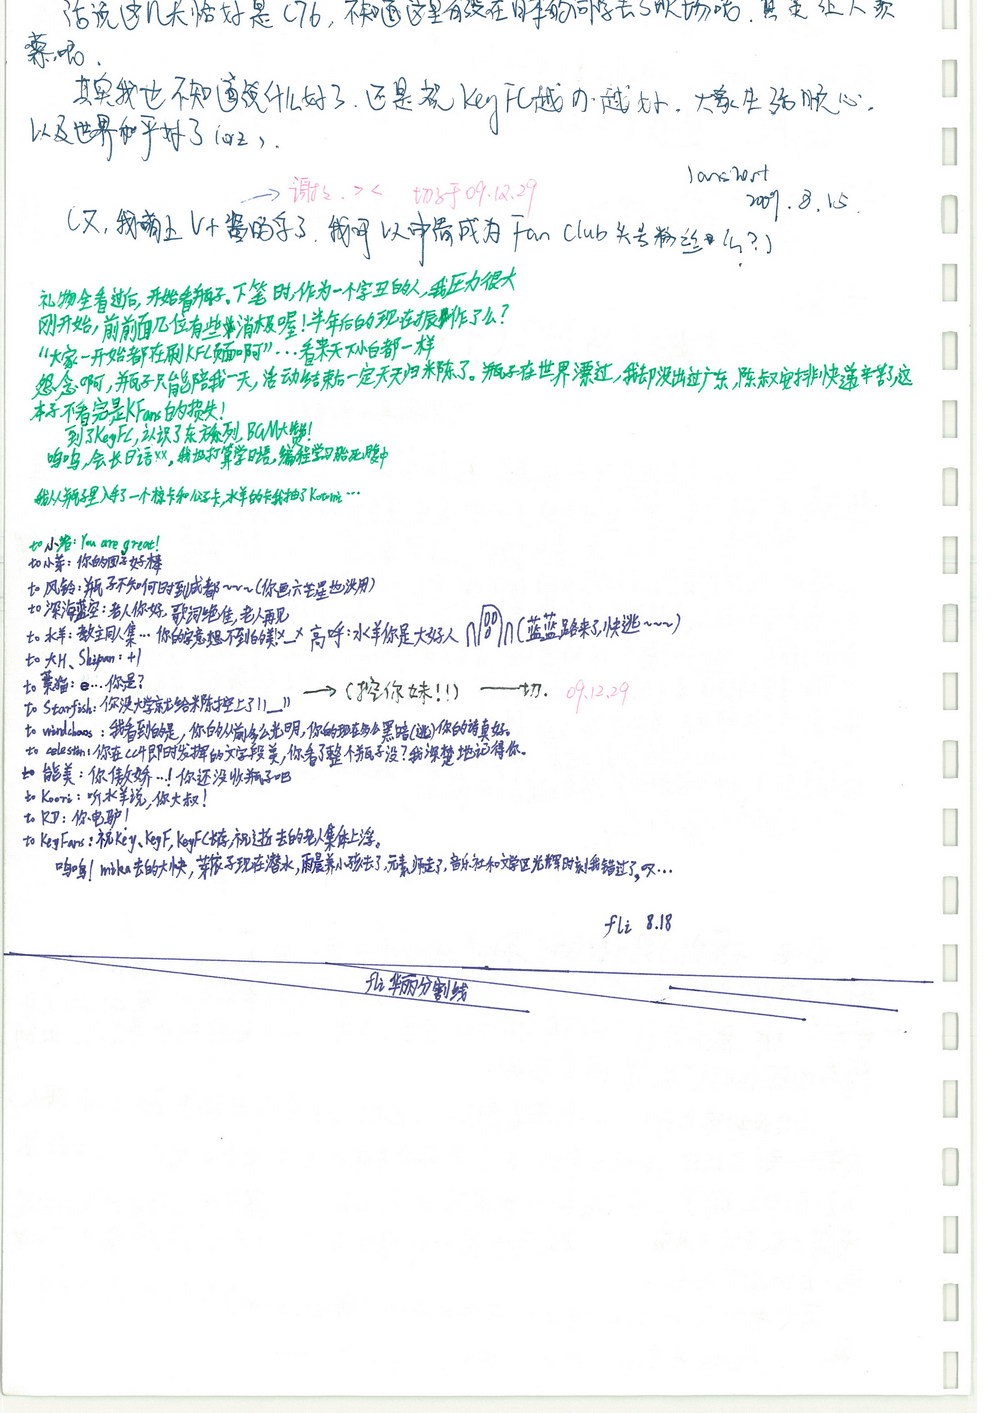 话说这几天恰好是C76,不知道这里有没有在日本的同学去了现场呢.真是让人羡
慕呢.
其实我也不知道说什么好了.还是祝KeyFC越办越好.大家生活顺心.
以及世界和平好了(orz).
2009.8.15
→谢谢.>< 切于09.12.29
(又,我萌上V+酱的字了.我可以申请成为Fan Club头号粉丝么?)
礼物全看过后,开始看瓶子。下笔时,作为一个字丑的人,我压力很大
刚开始,前前面几位有些消极喔!半年后的现在振作了么?
“大家一开始都在刷KFC页面啊”…看来天下小白都一样
怨念啊,瓶子只能陪我一天,活动结束后一定天天归米陈了。瓶子在世界漂过,我却没出过广东,陈叔安排快递辛苦了,这
本子不看完是KFans的损失!
到了KeyFC,认识了东方系列,BGM大赞!
呜呜,会长日语××,我也打算学日语,编程学习胎死腹中
我从瓶子里入手了一个棕卡和公子卡,水羊的卡我抽了Koori…
to 小洛: You are great!
to 小美: 你的图画好棒
to 风铃: 瓶子不知何时到成都~~~(你画六芒星也没用)
to 深海蓝空: 老人你好,歌词绝佳,老人再见
to 水羊: 教主同人集…你的字意想不到的美×_× 高呼:水羊你是大好人 (蓝蓝路来了,快逃~~~)
to 大H、Skipan: +1
to 葉猫: e…你是?
to Starfish: 你没大学就给米陈控上了!!__!! →(控你妹!!) ——切. 09.12.29
to windchaos: 我看到的是,你的从前多么光明,你的现在多么黑暗(逃)你的诗真好。
to celesian: 你在CC4即时发挥的文字段美,你看了整个瓶子没?我深楚地记得你。
to 能美: 你傲娇…!你还没收瓶子吧
to Koori: 听水羊说,你大叔!
to RD: 你电驴!
to KeyFans: 祝Key、KeyF,KeyFC长存,祝逝去的老人集体上浮。
呜呜!mika去的太快,芽依子现在潜水,雨晨养小孩去了,元素师走了,音乐社和文学区光辉时刻我错过了,叹…
fli 8.18
fli华丽分割线